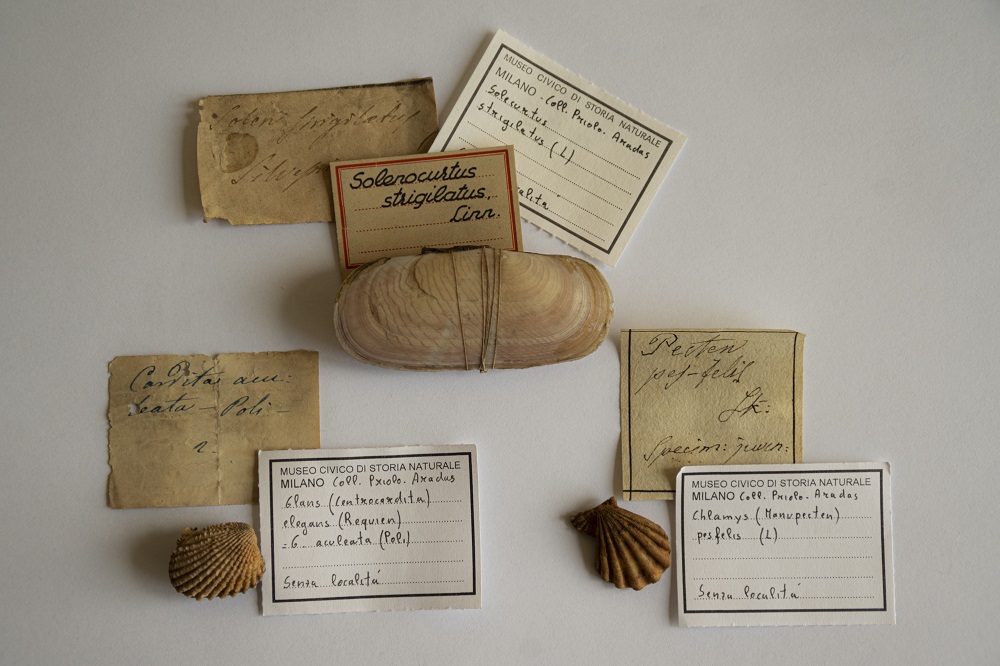 Solen strigilatus
MUSEO CIVICO DI STORIA NATURALE
MILANO Coll. Priolo. Aradas
Solecurtus
strigilatus (L)
calitá
Solenocurtus
strigilatus,
Linn.
Cardita acu:
leata - Poli -
2.
MUSEO CIVICO DI STORIA NATURALE
MILANO Coll. Priolo. Aradas
Glans (Centrocardita)
elegans (Requien)
=G. aculeata (Poli)
Senza localitá
Pecten
pes-felis
Lk:
Specim: juven:
MUSEO CIVICO DI STORIA NATURALE
MILANO Coll. Priolo. Aradas
Chlamys (Manupecten)
pesfelis (L)
Senza localitá